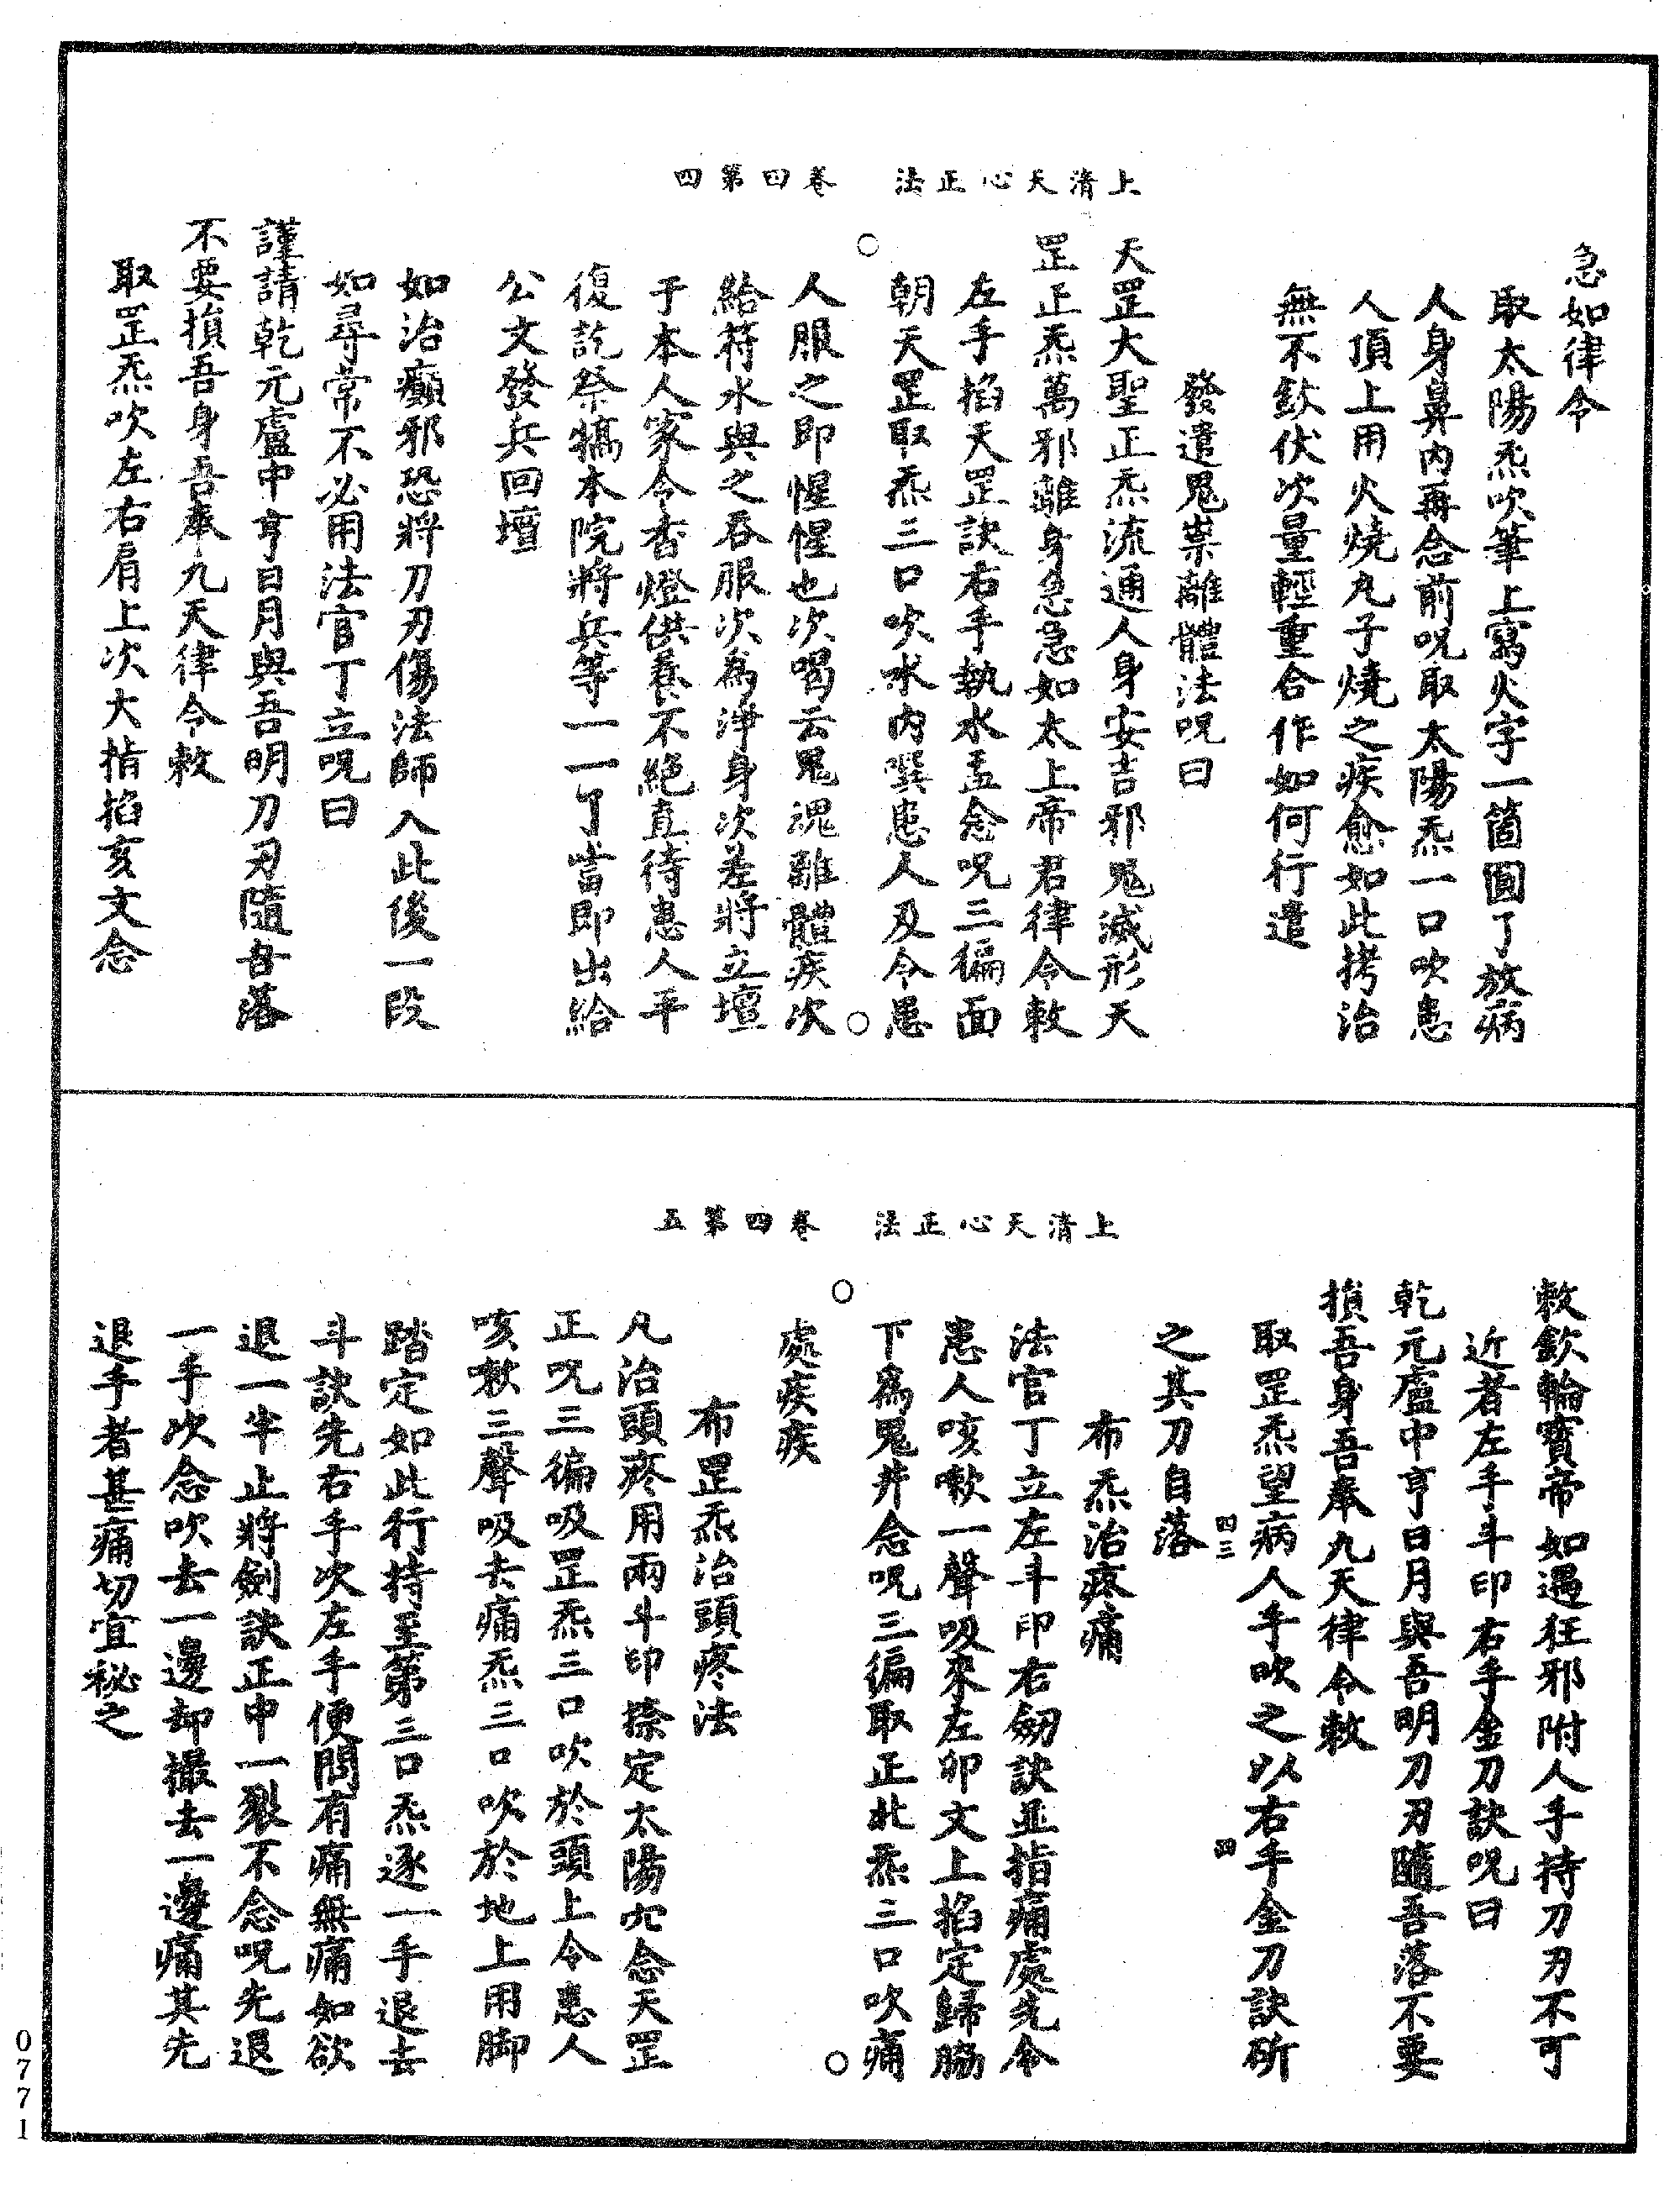 上清天心正法　卷四第四
急如律令
取太陽炁吹筆上寫火字一箇圓了放病
人身鼻內再念前呪取太陽炁一口吹患
人頂上用火燒丸子燒之疾愈如此拷治
無不欽伏次量輕重合作如何行遣
發遣鬼祟離體法呪曰
天罡大聖正炁流通人身安吉邪鬼滅形天
罡正炁萬邪離身急急如太上帝君律令敕
左手掐天罡訣右手執水盂念呪三徧面
朝天罡取炁三口吹水內噀患人及令患
人服之即惺惺也次喝云鬼魂離體疾次
給符水與之吞服次為淨身次差將立壇
于本人家令香燈供養不絕直待患人平
復訖祭犒本院將兵等一一了當即出給
公文發兵回壇
如治癲邪恐將刀刃傷法師入此後一段
如尋常不必用法官丁立呪曰
謹請乾元廬中亨日月與吾明刀刃隨吾落
不要損吾身吾奉九天律令敕
取罡炁吹左右肩上次大指掐亥文念
上清天心正法　卷四第五
敕欽輪寶帝如遇狂邪附人手持刀刃不可
近者左手斗印右手金刀訣呪曰
乾元廬中亨日月與吾明刀刃隨吾落不要
損吾身吾奉九天律令敕
取罡炁望病人手吹之以右手金刀訣斫
四三
四
之其刀自落
布炁治疼痛
法官丁立左斗印右劒訣並指痛處先令
患人咳嗽一聲吸來左卯文上掐定歸脇
下為鬼井念呪三徧取正北炁三口吹痛
處疾疾
布罡炁治頭疼法
凡治頭疼用兩斗印捺定太陽穴念天罡
正呪三徧吸罡炁三口吹於頭上令患人
咳嗽三聲吸去痛炁三口吹於地上用脚
踏定如此行持至第三口炁逐一手退去
斗訣先右手次左手便問有痛無痛如欲
退一半止將劍訣正中一裂不念呪先退
一手次念吹去一邊却撮去一邊痛其先
退手者甚痛切宜秘之
0771